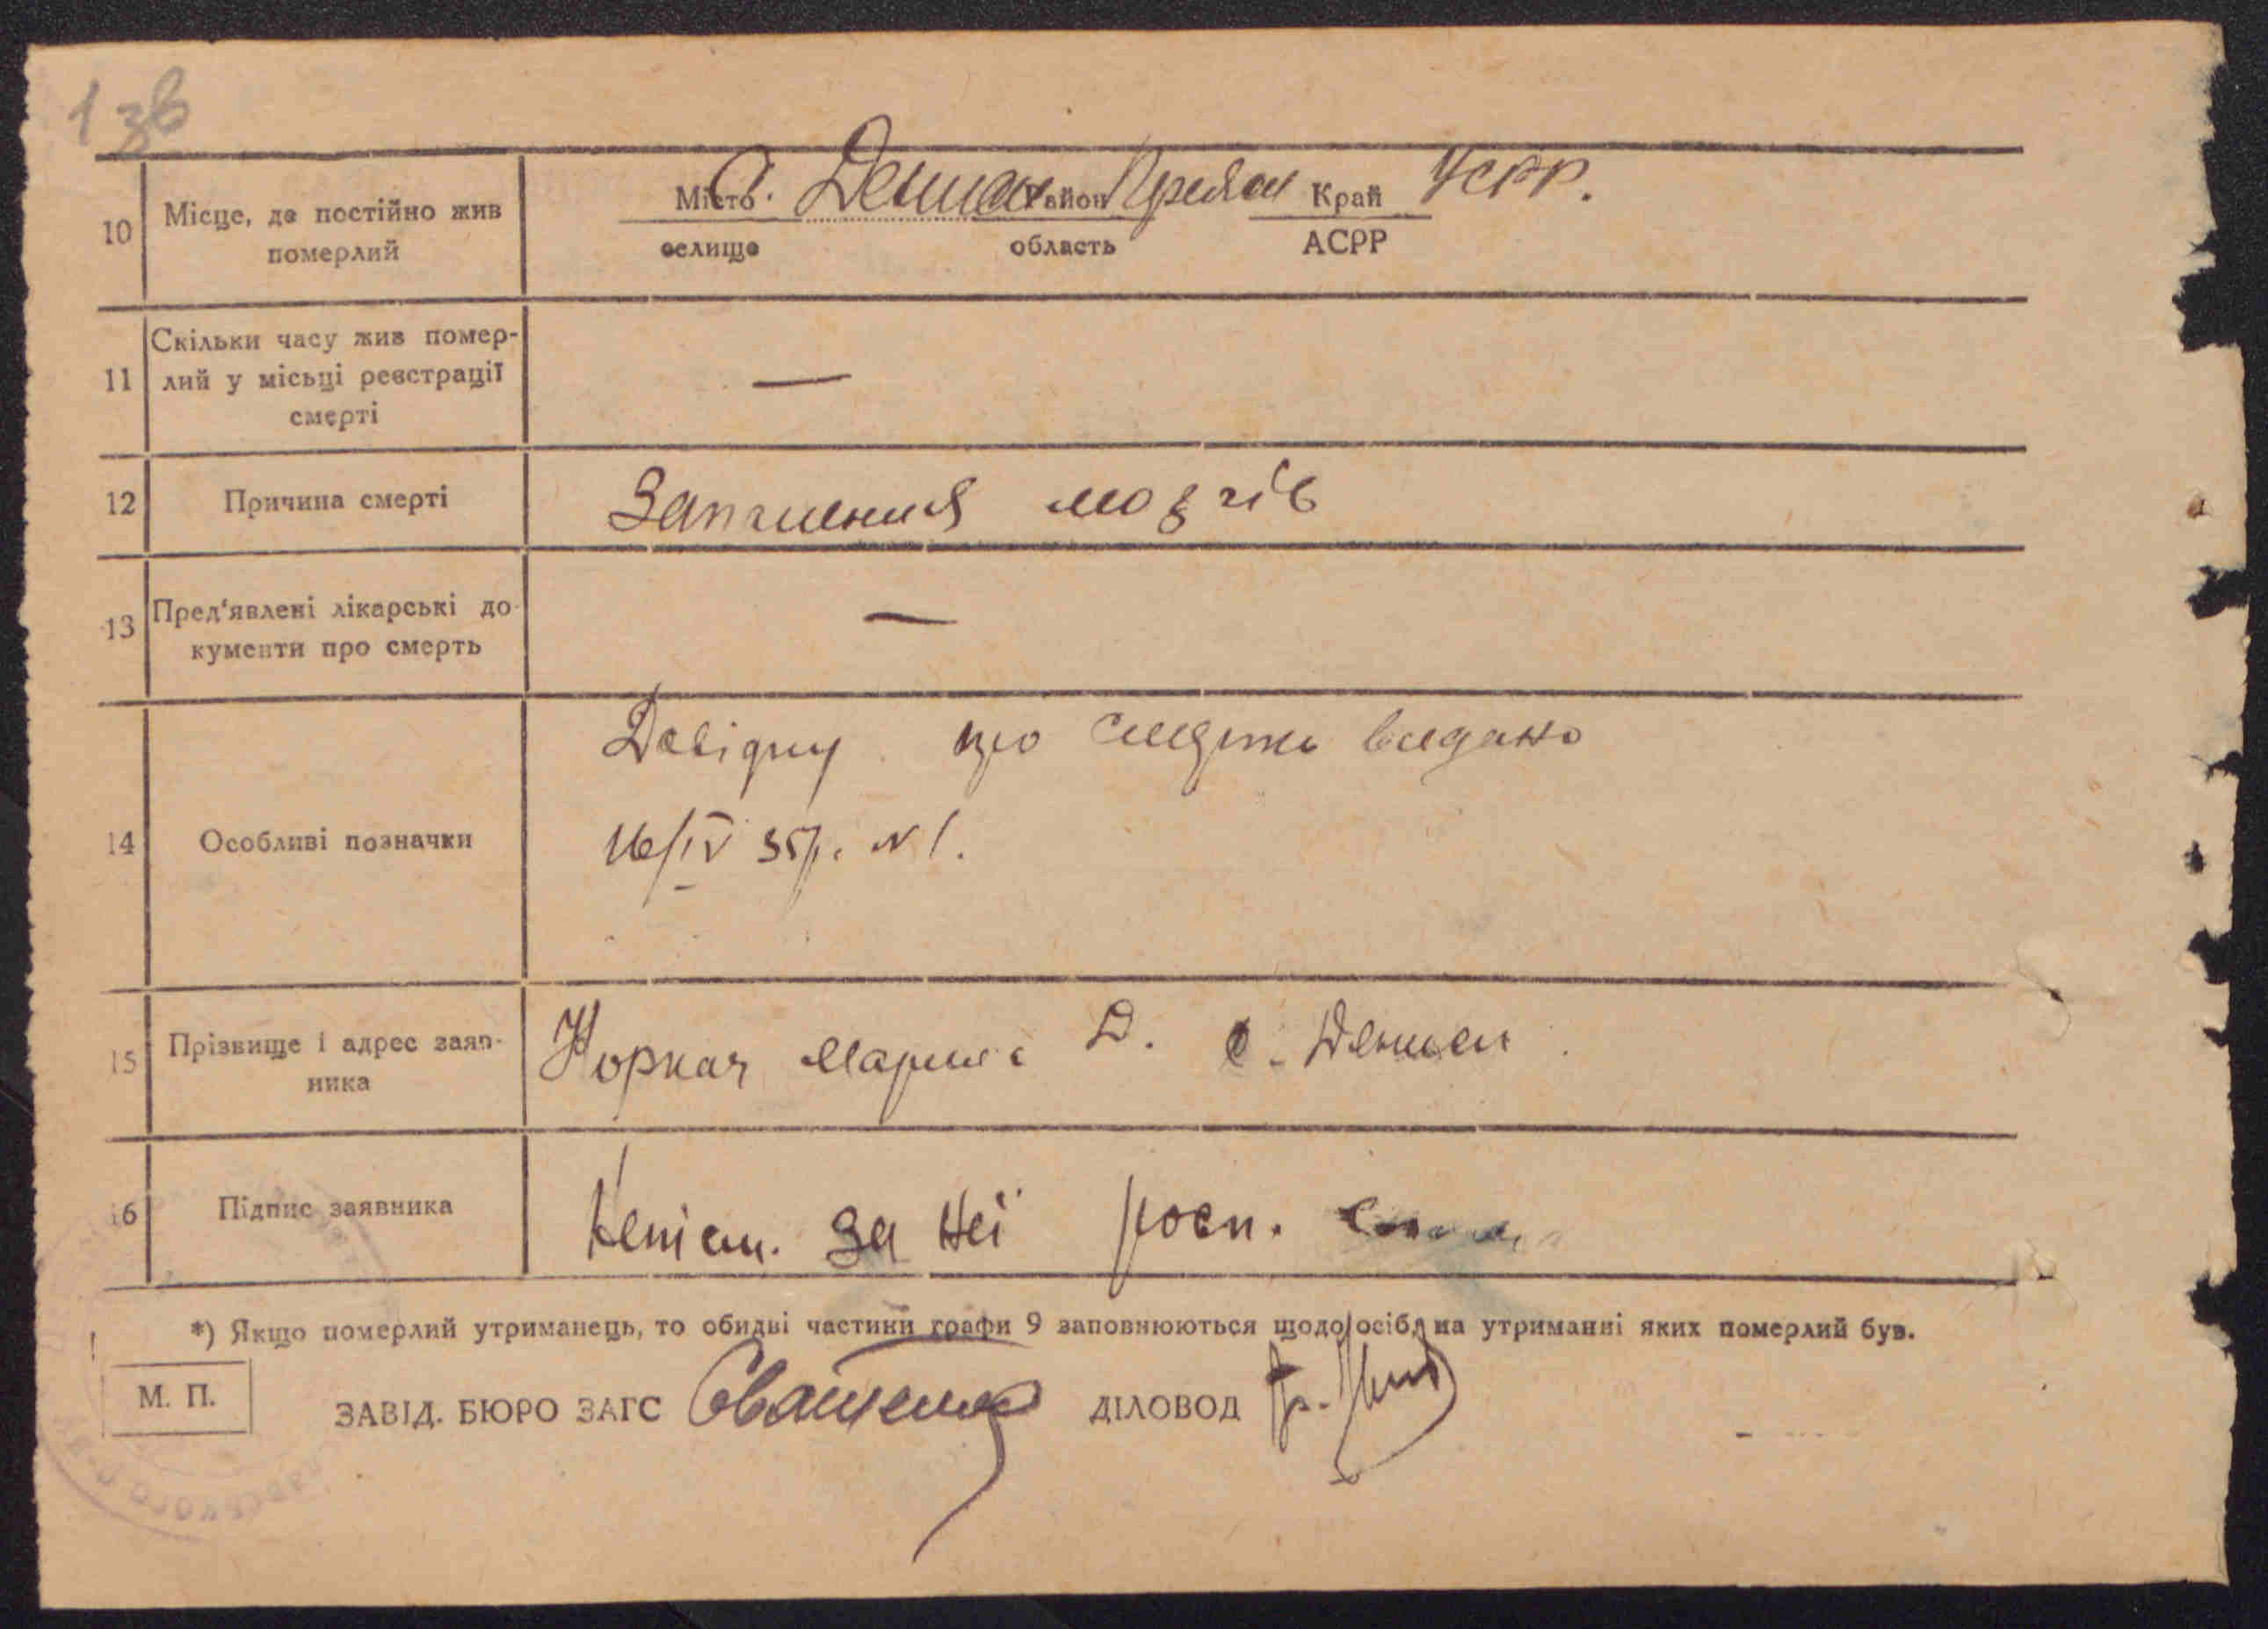 1 зв
10
Місце, де постійно жив
померлий
Місто С. Демки Район Край УСРР.
селище область АСРР
11
Скільки часу жив помер-
лий у місьці реєстрації
смерті
—
12
Причина смерті
Запалення мозгів
13
Пред'явлені лікарські до-
кументи про смерть
—
14
Особливі позначки
Довідку про смерть видано
16/IV 35р. № 1.
15
Прізвище і адрес заяв-
ника
Марія Д. с.
16
Підпис заявника
Неписм. За неї росп.
*) Якщо померлий утриманець, то обидві частини графи 9 заповнюються щодо осіб, на утриманні яких померлий був.
М. П.
ЗАВІД. БЮРО ЗАГС ДІЛОВОД